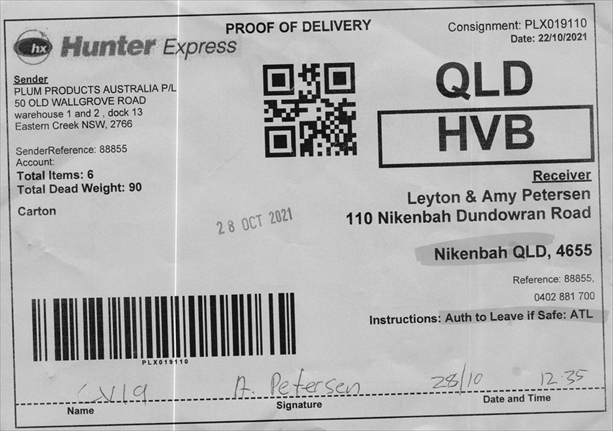 hx Hunter Express
PROOF OF DELIVERY
Consignment: PLX019110
Date: 22/10/2021
Sender
PLUM PRODUCTS AUSTRALIA P/L
50 OLD WALLGROVE ROAD
warehouse 1 and 2 , dock 13
Eastern Creek NSW, 2766
SenderReference: 88855
Account:
Total Items: 6
Total Dead Weight: 90
Carton
QLD
HVB
Receiver
Leyton & Amy Petersen
110 Nikenbah Dundowran Road
Nikenbah QLD, 4655
Reference: 88855,
0402 881 700
Instructions: Auth to Leave if Safe: ATL
28 OCT 2021
PLX019110
A. Petersen 28/10 12.35
Name Signature Date and Time